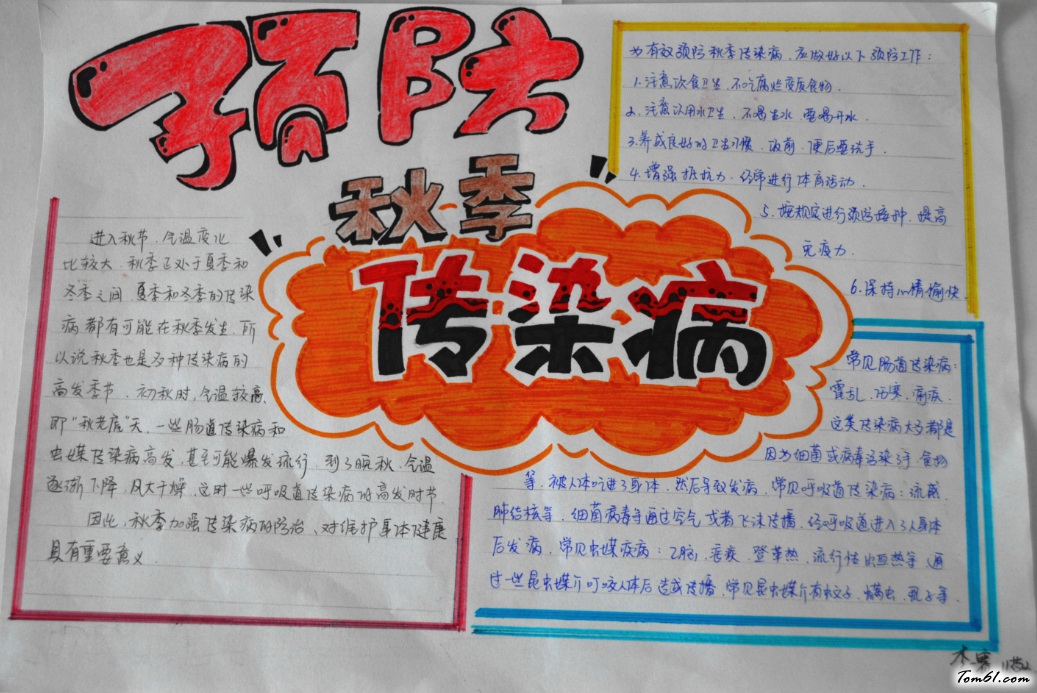 预防
秋季
传染病
进入秋节，气温变化
比较大，秋季正处于夏季和
冬季之间，夏季和冬季的传染
病都有可能在秋季发生，所
以说秋季也是多种传染病的
高发季节，初秋时，气温较高，
即“秋老虎”天，一些肠道传染病和
虫媒传染病高发，甚至可能爆发流行，到了晚秋，气温
逐渐下降，风大干燥，这时一些呼吸道传染病的高发时节
因此，秋季加强传染病的防治，对保护身体健康
具有重要意义．
为有效预防秋季传染病，应做好以下预防工作：
1.注意饮食卫生，不吃腐烂变质食物．
2.注意饮用水卫生，不喝生水，要喝开水．
3.养成良好的卫生习惯，饭前，便后要洗手．
4.增强抵抗力，经常进行体育活动．
5.按规定进行预防接种，提高
免疫力．
6.保持心情愉快．
常见肠道传染病：
霍乱，伤寒，痢疾，
这类传染病大多都是
因为细菌或病毒污染了手，食物
等，被人体吃进了身体，然后导致发病，常见呼吸道传染病：流感，
肺结核等，细菌病毒等通过空气或者飞沫传播，经呼吸道进入了人身体
后发病，常见虫媒疾病：乙脑，疟疾，登革热，流行性出血热等，通
过一些昆虫媒介叮咬人体后造成传播，常见昆虫媒介有蚊子，螨虫，虱子等．
Tom61.com